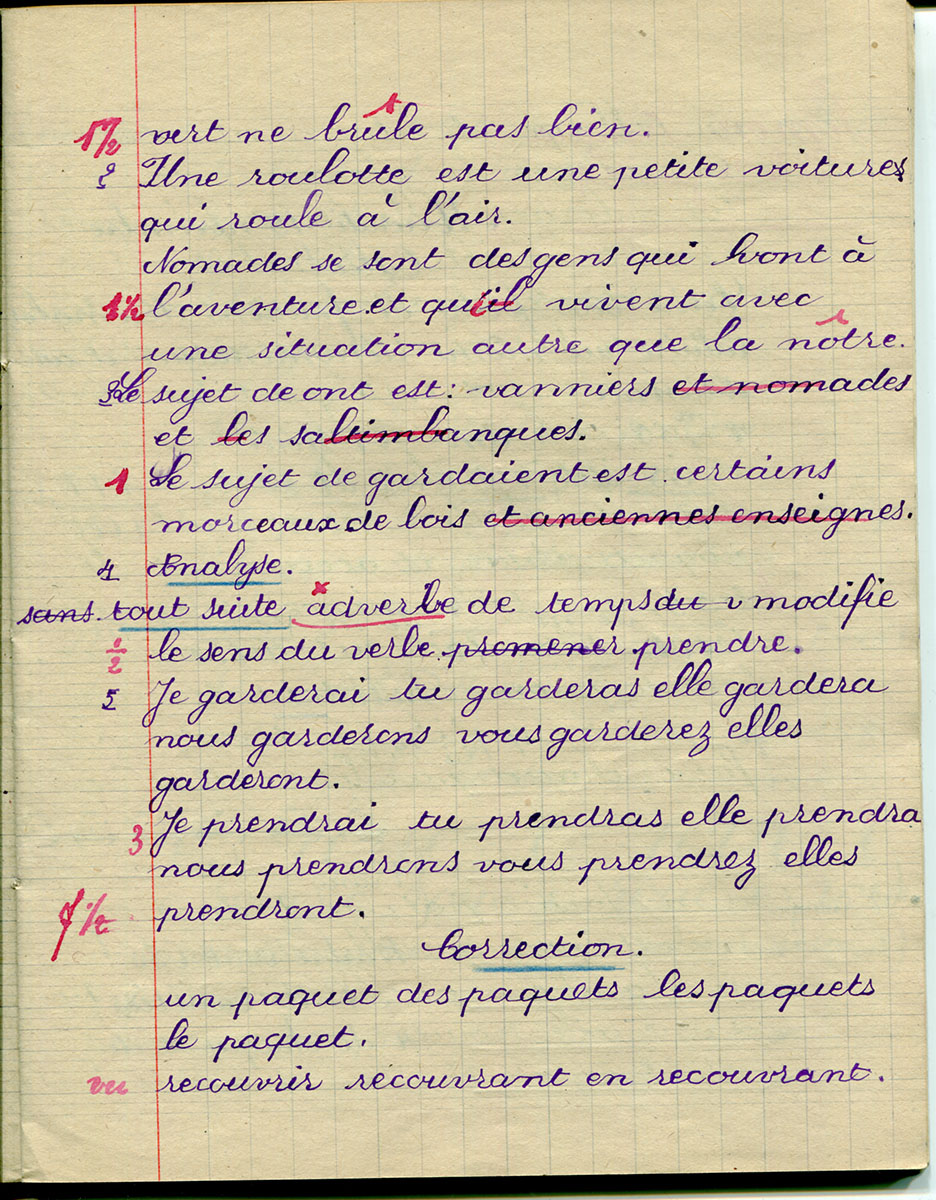 1 1/2 vert ne brûle pas bien.
2 Une roulotte est une petite voitures
qui roule à l'air.
Nomades se sont des gens qui vont à
1 1/2 l'aventure. et qu'il vivent avec
une situation autre que la nôtre.
3 Le sujet de ont est : vanniers et nomades
et les saltimbanques.
1 Le sujet de gardaient est certains
morceaux de bois et anciennes enseignes.
4 Analyse.
sans tout suite adverbe de temps du v modifie
1/2 le sens du verbe promener prendre.
5 Je garderai tu garderas elle gardera
nous garderons vous garderez elles
garderont.
3 Je prendrai tu prendras elle prendra
nous prendrons vous prendrez elles
7 1/2 prendront.
Correction.
un paquet des paquets les paquets
le paquet.
vu recouvrir recouvrant en recouvrant.